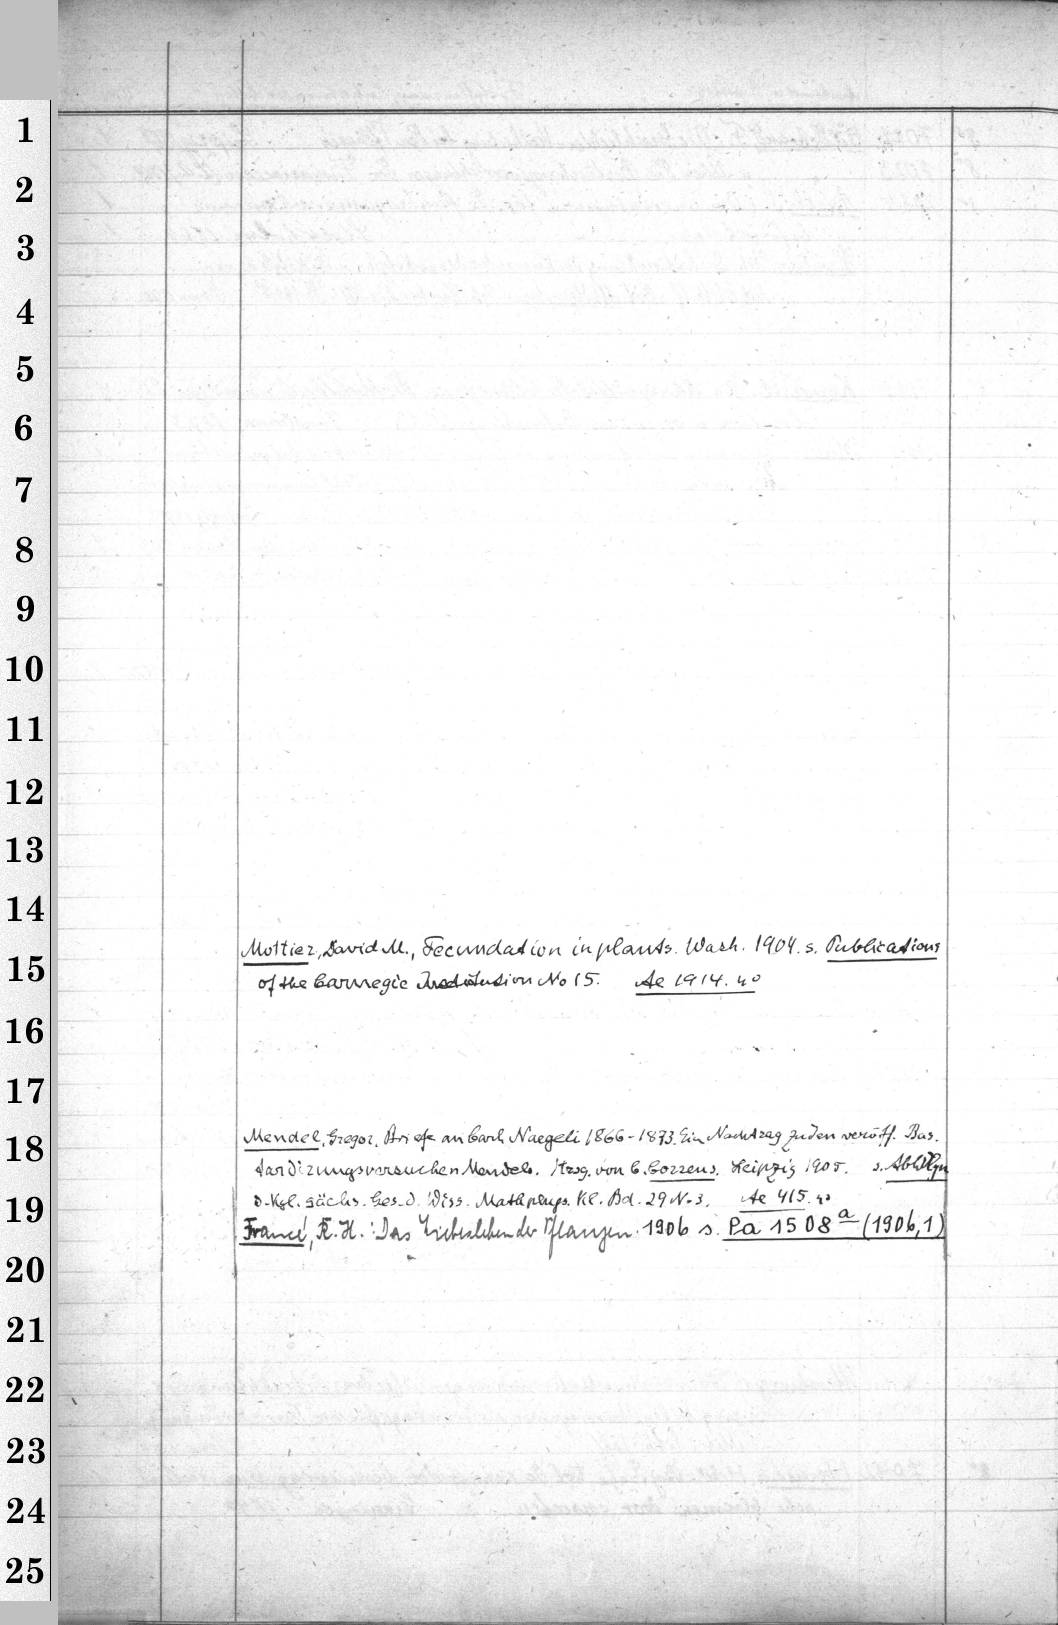 1
2
3
4
5
6
7
8
9
10
11
12
13
14
Mottier, David M., Fecundation in plants. Wash. 1904. s. Publications
15
of the Carnegie Institution No 15. Ae 1914. 4°
16
17
Mendel, Gregor, Briefe an Carl Naegeli 1866-1873. Ein Nachtrag zu den veröff. Bas-
18
tardizungsversuchen Mendels. Hrsg. von C. Correns. Leipzig 1905. s. Abhdlgn
d. Kgl. sächs. Ges. d. Wiss. Math. phys. Kl. Bd. 29 N. 3. Ae 415. 4°
19
Francé, R. H.: Das Liebesleben der Pflanzen. 1906 s. Pa 1508 a (1906,1)
20
21
22
23
24
25